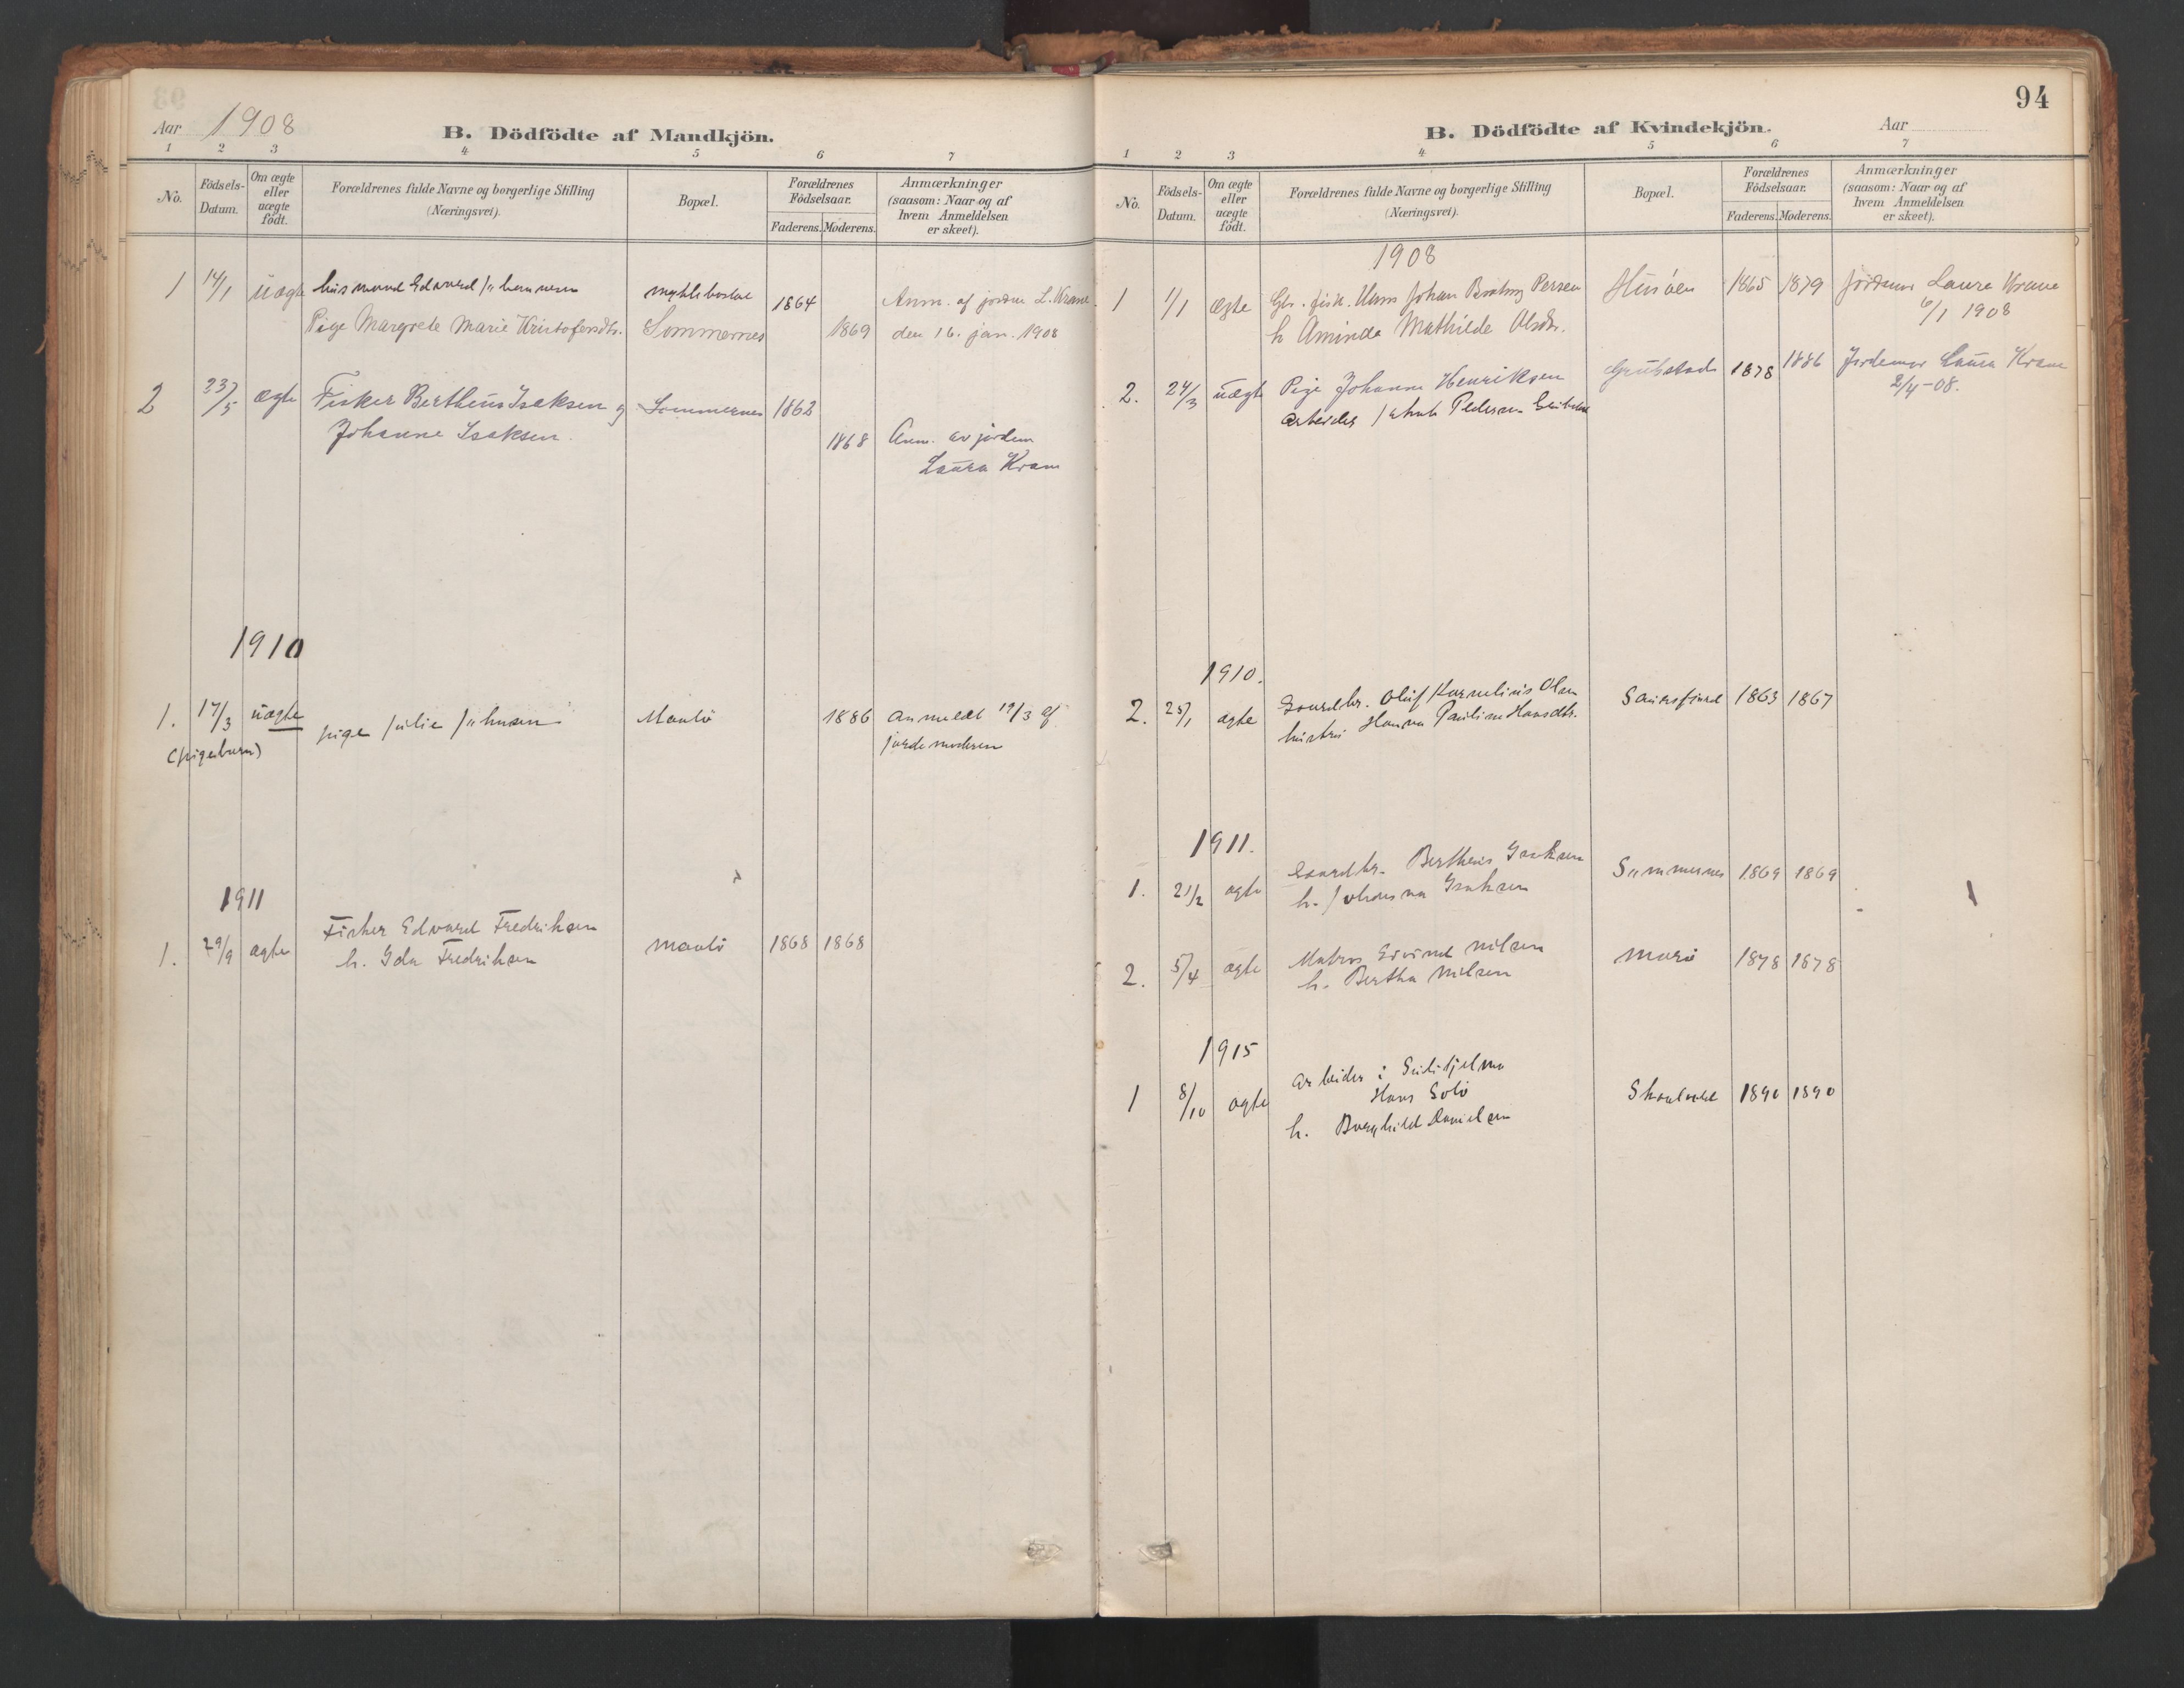 Aar 1908
B. Dödfödte af Mandkjön.
1 2 3 4 5 6 7
No.
Födsels-Datum.
Om ægte eller uægte født.
Forældrenes fulde Navne og borgerlige Stilling (Næringsvei).
Bopæl.
Forældrenes Födselsaar.
Faderens. Moderens.
Anmærkninger (saasom: Naar og af hvem Anmeldelsen er skeet).
1 14/1 uægte husmand Edvard Johannesen 1864 Anm. af jordm L. Krane
Pige Margrete Marie Kristofersdtr. Sommernes 1869 den 16. jan. 1908
2 23/5 ægte Fisker Bertheus Isaksen og Sommernes 1862
Johanne Isaksen. 1868 Anm. av jordem
Laura Krane
1910
1. 17/3 uægte pige Julie Johnsen Maulø 1886 anmeldt 19/3 af
(pigebarn) jordemoderen
1911
1. 29/9 ægte Fisker Edvard Fredriksen Maulø 1868 1868
h. Ida Fredriksen
94
B. Dödfödte af Kvindekjön.
Aar
1 2 3 4 5 6 7
No.
Födsels-Datum.
Om ægte eller uægte födt.
Forældrenes fulde Navne og borgerlige Stilling (Næringsvei).
Bopæl.
Forældrenes Födselsaar.
Faderens. Moderens.
Anmærkninger (saasom: Naar og af hvem Anmeldelsen er skeet).
1908
1 1/1 ægte Gbr. fisk. Hans Johan Persen Husöen 1865 1879 jordmor Laura Krane
h Aminda Mathilde Olsdtr. 6/1 1908
2. 24/3 uægte Pige Johanne Henriksen Grubstad 1878 1886 Jordemor Laura Krane
arbeider Jakob Pedersen 2/4-08.
1910.
2. 25/1 ægte Gaardbr. Oluf Kornelius Olsen 1863 1867
hustru Hanna Pauline Hansdtr.
1911.
1. 21/2 ægte Gaardbr. Bertheus Isaksen Sommernes 1869 1869
h. Johanna Isaksen
2. 5/4 ægte Matros Eivind Nilsen 1878 1878
h. Bertha Nilsen
1915
1 8/10 ægte arbeider i Sulitjelma
Hans Solø 1890 1890
h. Borghild Danielsen